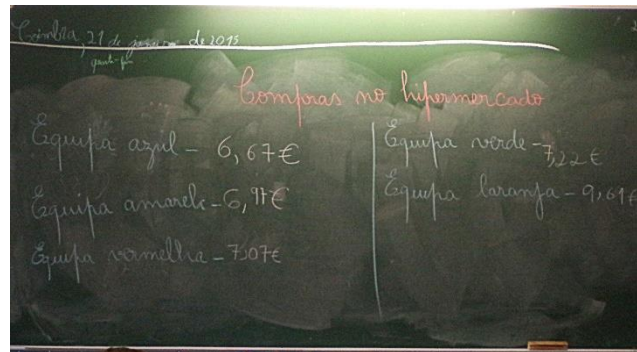 Coimbra, 21 de janeiro de 2015
quarta-feira
Compras no hipermercado
Equipa azul - 6,67€
Equipa amarela - 6,97€
Equipa vermelha - 7,07€
Equipa verde - 7,22€
Equipa laranja - 9,61€